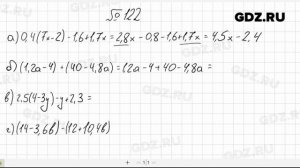 GDZ.RU
№ 122
а) 0,4(7x-2)-1,6+1,7x = 2,8x - 0,8 - 1,6 + 1,7x = 4,5x - 2,4
б) (1,2a-4)+(40-4,8a) = 1,2a - 4 + 40 - 4,8a =
в) 2,5(4-3y)-y+2,3 =
г) (14-3,6b)-(12+10,4b)